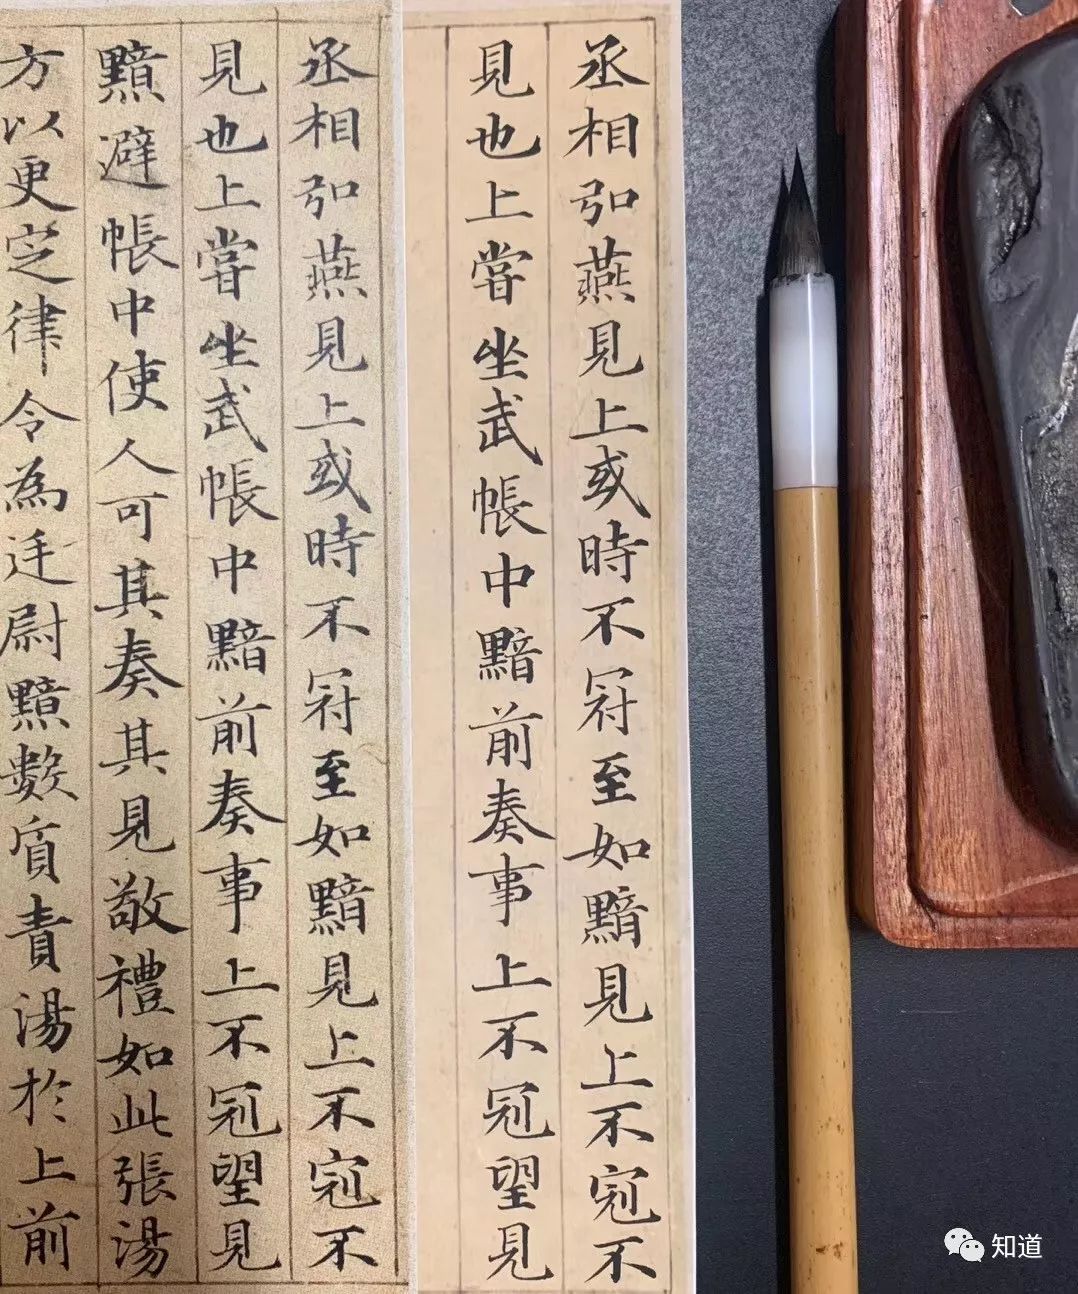 丞相弘燕見上或時不冠至如黯見上不冠不
見也上嘗坐武帳中黯前奏事上不冠望見
丞相弘燕見上或時不冠至如黯見上不冠不
見也上嘗坐武帳中黯前奏事上不冠望見
黯避帳中使人可其奏其見敬禮如此張湯
方以更定律令為廷尉黯數質責湯於上前
知道